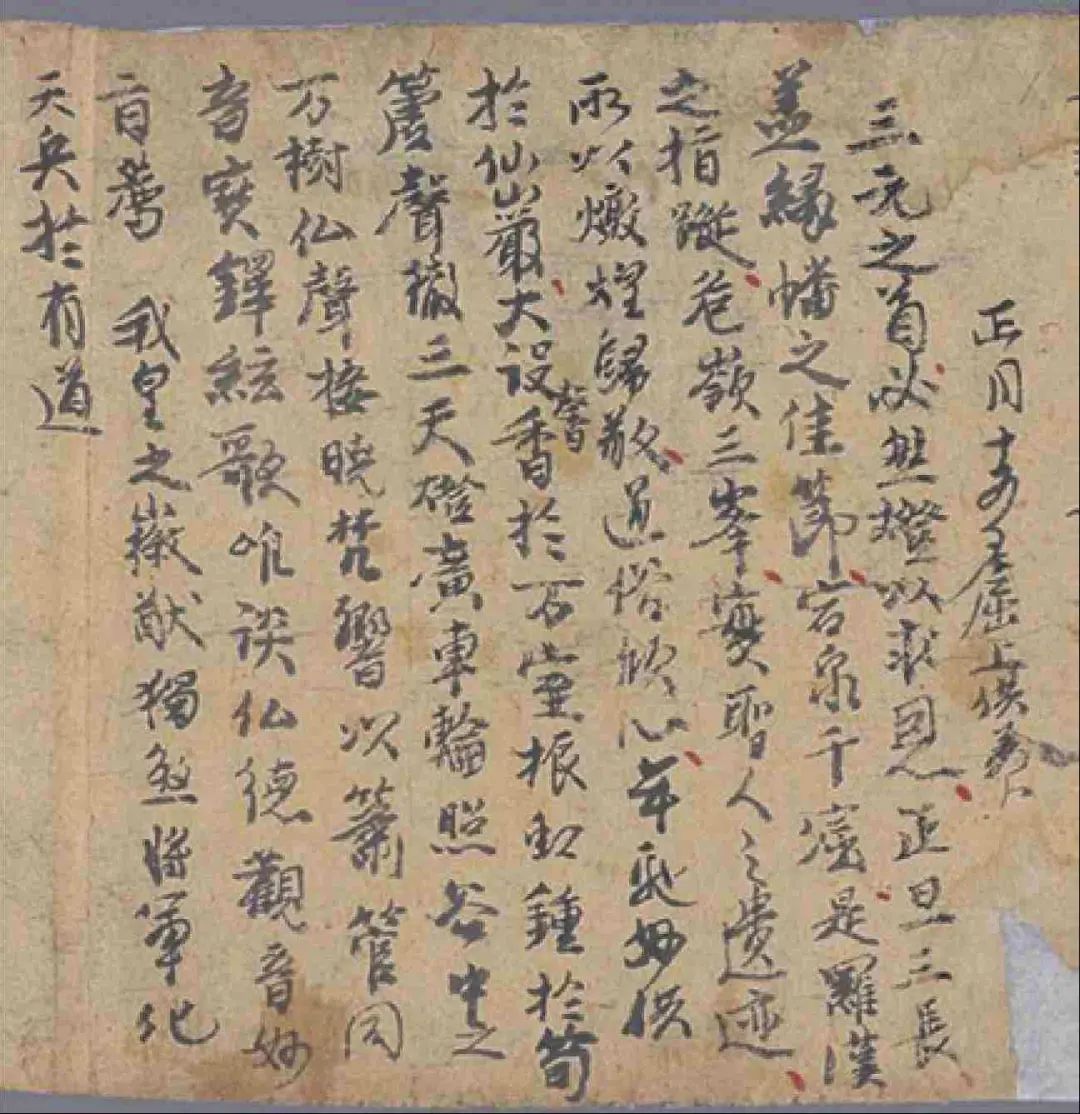 正月十五日窟上供養
三元之首必然燈以求恩正旦三長
盖緣幡之佳節宕泉千窟是羅漢
之指蹤危嶺三峯實聖人之遺迹
所以燉煌歸敬道俗傾心年馳妙供
於仙巖大設馨香於万室振虹鍾於筍
簷聲撤三天燈廣車輪照谷中之
万樹仏聲接曉梵響以簫管同
音寳鐸絃歌唯談仏德觀音妙
旨薦　我皇之徽猷獨煞將軍化
天兵於有道